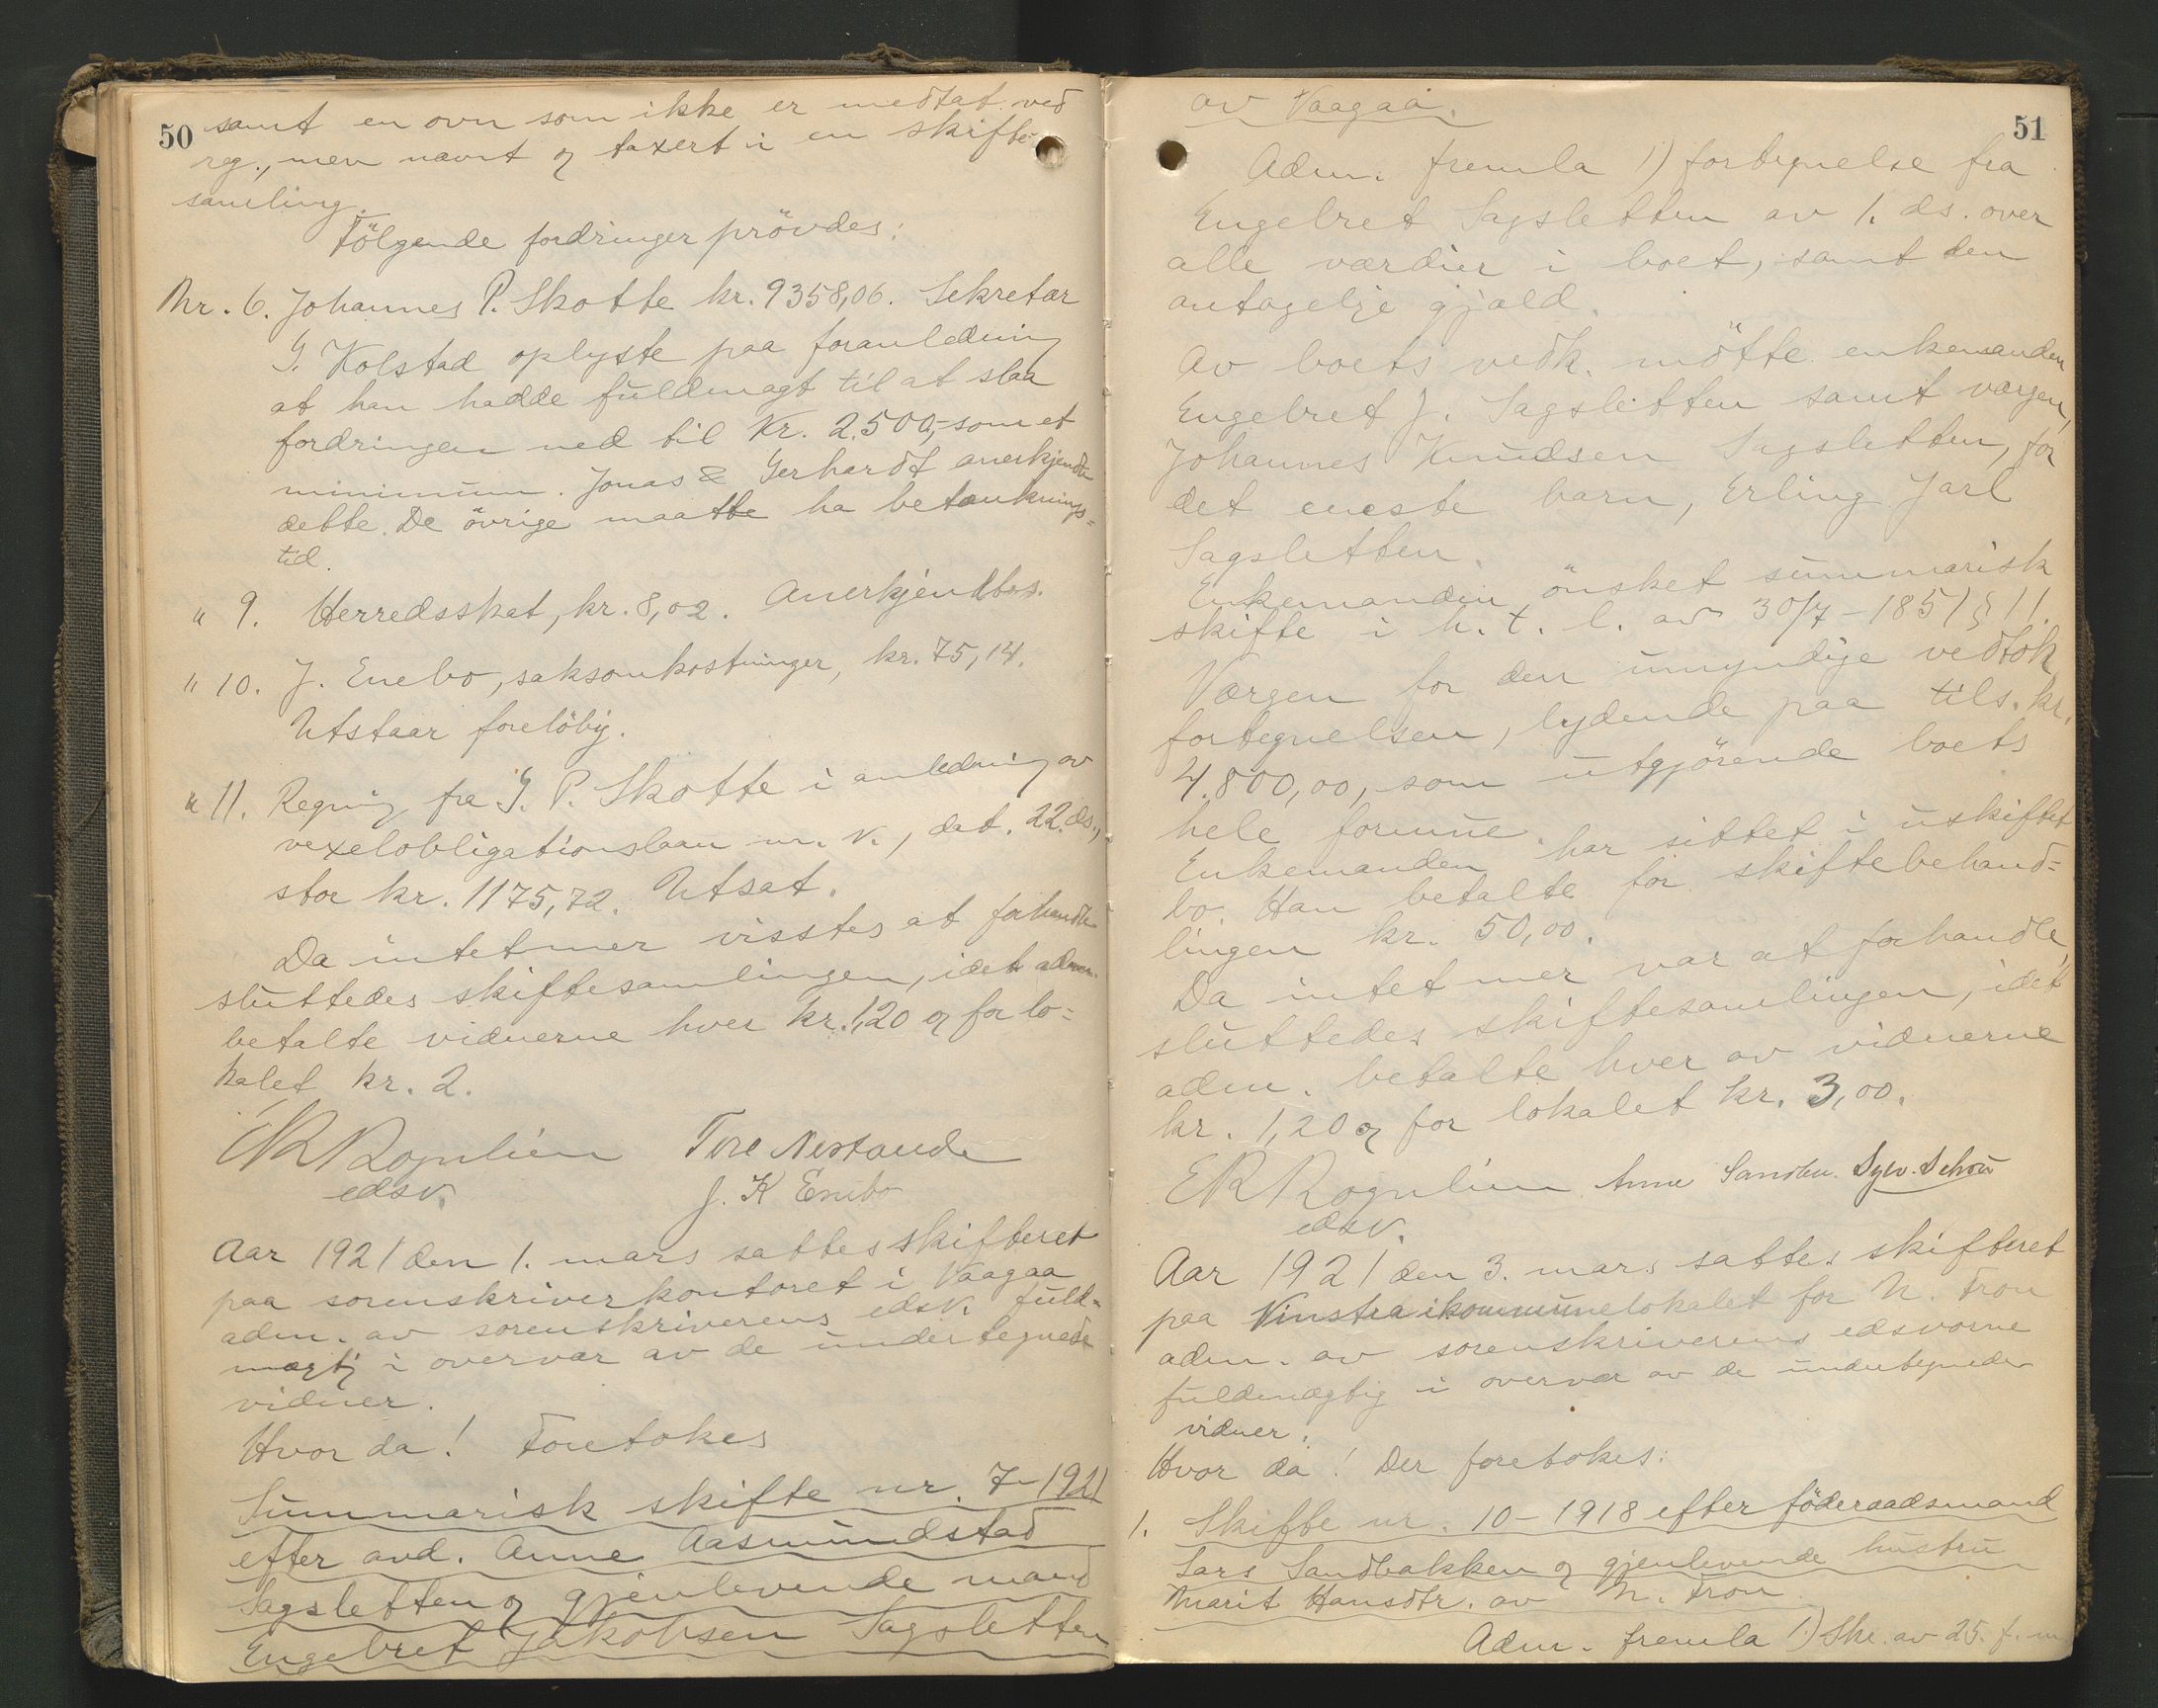 50
samt en ovn som ikke er medtat ved
reg., men nævnt og taxert i en skifte-
samling.
Følgende fordringer prövdes:
Nr. 6. Johannes P. Skotte kr. 9358,06. Sekretær
G. Kolstad oplyste paa foranledning
at han hadde fuldmagt til at slaa
fordringen ned til Kr. 2.500,- som et
minimum. Jonas & Gerhardt anerkjendte
dette. De övrige maatte ha betænknings=
tid.
" 9. Herredsskat, kr. 8,02. Anerkjendtes.
" 10. J. Enebo, saksomkostninger, kr. 75,14.
Utstaar forelöbig.
" 11. Regning fra G. P. Skotte i anledning av
vexelobligationslaan m. v., dat. 22. ds.,
stor kr. 1175,72. Utsat.
Da intet mer visstes at forhandle
sluttedes skiftesamlingen, idet adm.
betalte vidnerne hver kr. 1,20 og for lo=
kalet kr. 2.
ER Rognlien Tore Nestande
edsv. J. K Enebo
Aar 1921 den 1. mars sattes skifteret
paa sorenskriverkontoret i Vaagaa
adm. av sorenskriverens edsv. fuld-
mægtig i overvær av de undertegnede
vidner.
Hvor da! Foretokes
Summarisk skifte nr. 7-1921
efter avd. Anne Aasmundstad
Sagsletten og gjenlevende mand
Engebret Jakobsen Sagsletten
51
av Vaagaa.
Adm. fremla 1) fortegnelse fra
Engebret Sagsletten av 1. ds. over
alle værdier i boet, samt den
antagelige gjæld.
Av boets vedk. mötte enkemanden
Engebret J. Sagsletten samt værgen,
Johannes Knudsen Sagsletten, for
det eneste barn, Erling Jarl
Sagsletten.
Enkemanden önsket summarisk
skifte i h. t. l. av 30/7-1851 § 11.
Værgen for den umyndige vedtok
fortegnelsen, lydende paa tils. kr.
4.800,00, som utgjörende boets
hele formue.
Enkemanden har sittet i uskiftet
bo. Han betalte for skiftebehand=
lingen kr. 50,00.
Da intet mer var at forhandle
sluttedes skiftesamlingen, idet
adm. betalte hver av vidnerne
kr. 1,20 og for lokalet kr. 3,00.
ER Rognlien Anne Sandbu. Sylv. Schou
edsv.
Aar 1921 den 3. mars sattes skifteret
paa Vinstra i kommunelokalet for N. Fron
adm. av sorenskriverens edsvorne
fuldmægtig i overvær av de undertegnede
vidner.
Hvor da! Der foretokes:
1. Skifte nr. 10-1918 efter föderaadsmand
Lars Sandbakken og gjenlevende hustru
Marit Hansdtr. av N. Fron
Adm. fremla 1) Skr. av 25. f. m.